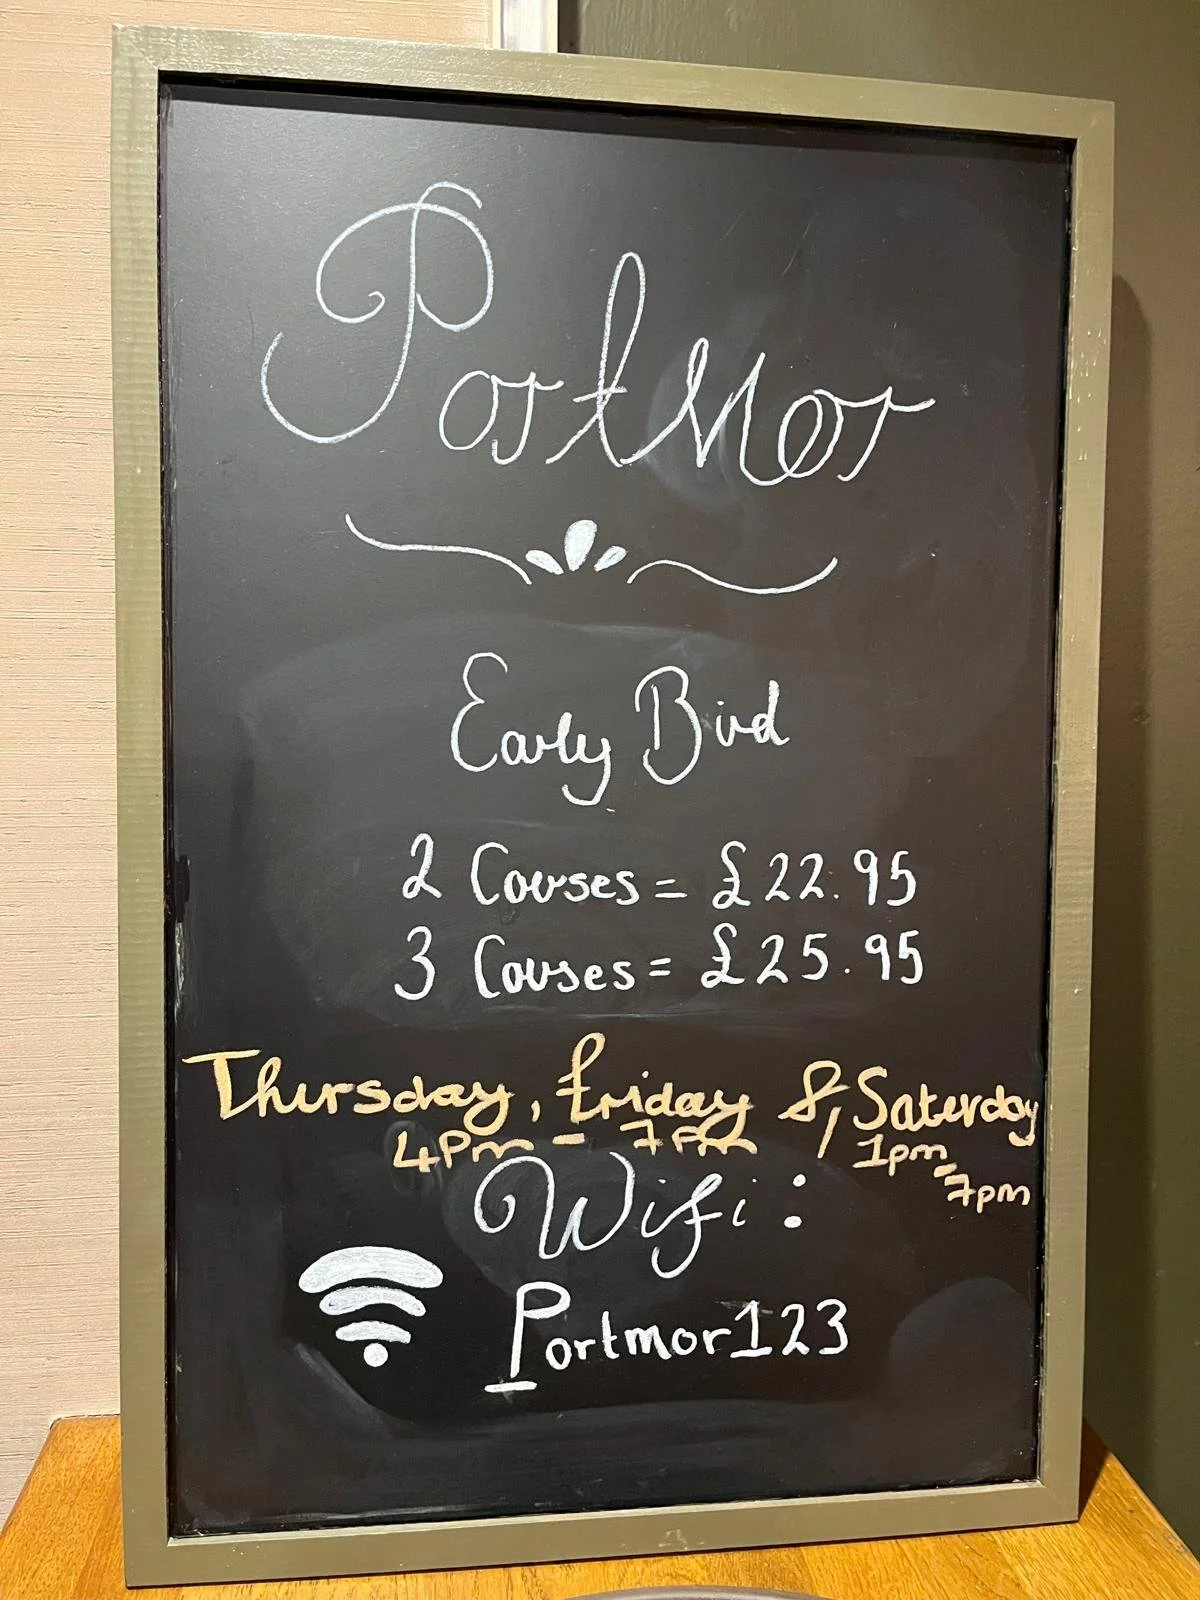 PortMor
Early Bird
2 Courses = £22.95
3 Courses = £25.95
Thursday, Friday & Saturday
4pm - 7pm 1pm -
7pm
Wifi:
Portmor123